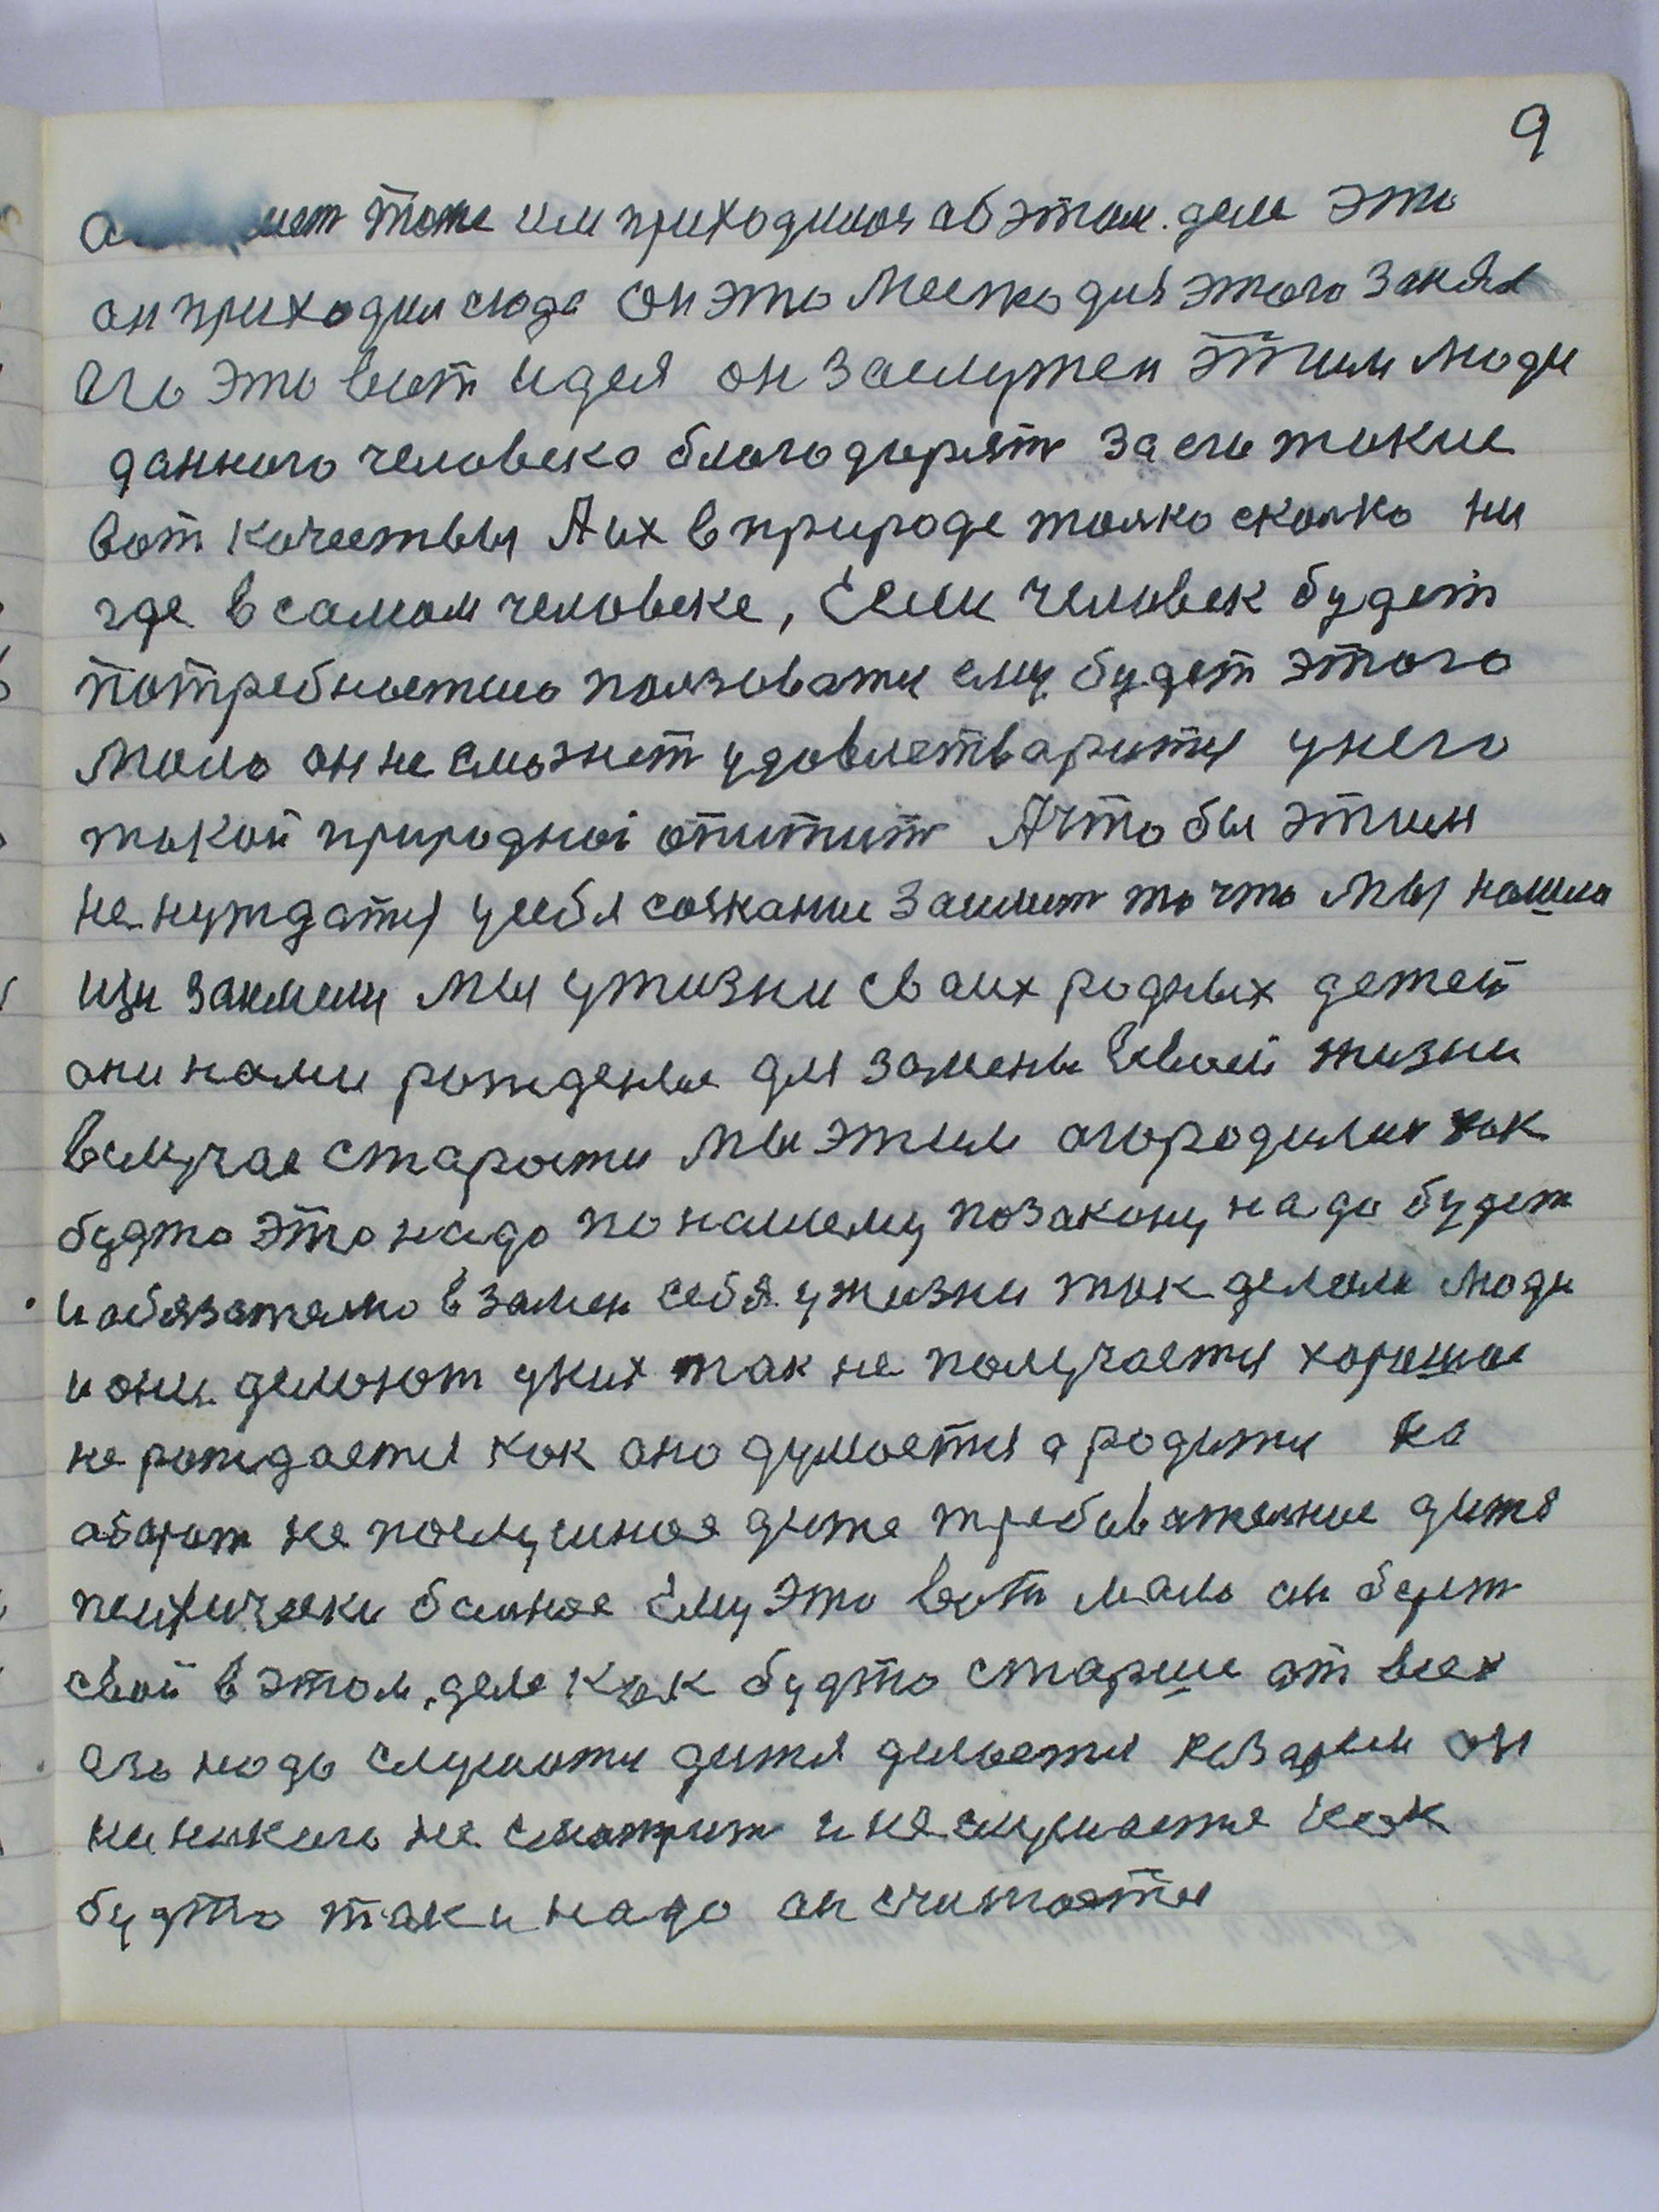 9
тоже им приходилоя об этом. деле это
он приходил сюда он это Место для этого занял
его это вот идея он заслужен этим люди
данного человека благодарят за его такие
вот качествы А их в природе толко сколко ни
где в самом человеке, Если человек будет
потребностию ползоватся ему будет этого
Мало он не сможет удовлетварится унего
такой природной апитит А что бы этим
не нуждатся усебя то что мы нашли
мы ужизни сваих родных детей
они нами рожденые для замены Своей жизни
вслучае старости мы этим огородилис как
будто это надо по нашему позакону надо будет
и обязателно взамен себя ужизни так делали люди
и они делают уних так не получается хорошое
не рождается как оно думается а родится на
аборот не послушное дитя требователное дитя
психически болное Ему это вот мало он берет
свой в этом деле как будто старше от всех
его надо слушати дитя делается он
ни на кого не смотрит и не слушаетя как
будто так и надо он считается